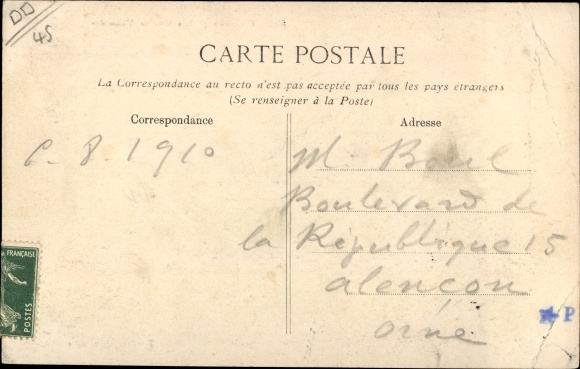 45
CARTE POSTALE
La Correspondance au recto n'est pas acceptée par tous les pays étrangers
(Se renseigner à la Poste)
Correspondance
Adresse
6-8-1910
M. Boul
Boulevard de
la République 15
alençon
orne
FRANÇAISE
POSTES
P